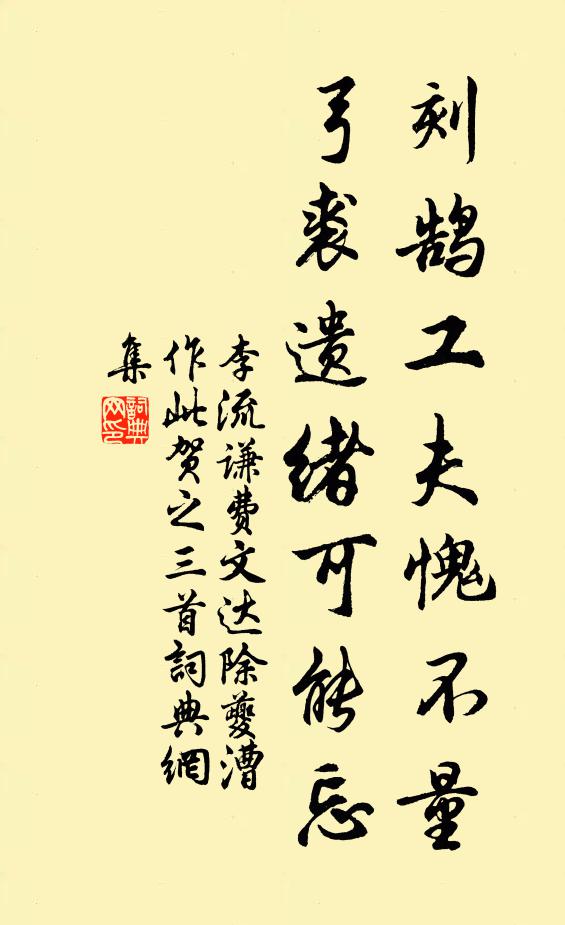 刻鹄工夫愧不量
弓裘遗绪可能忘
李流谦费文达除夔漕
作此贺之三首词典網
集
詞典
网印